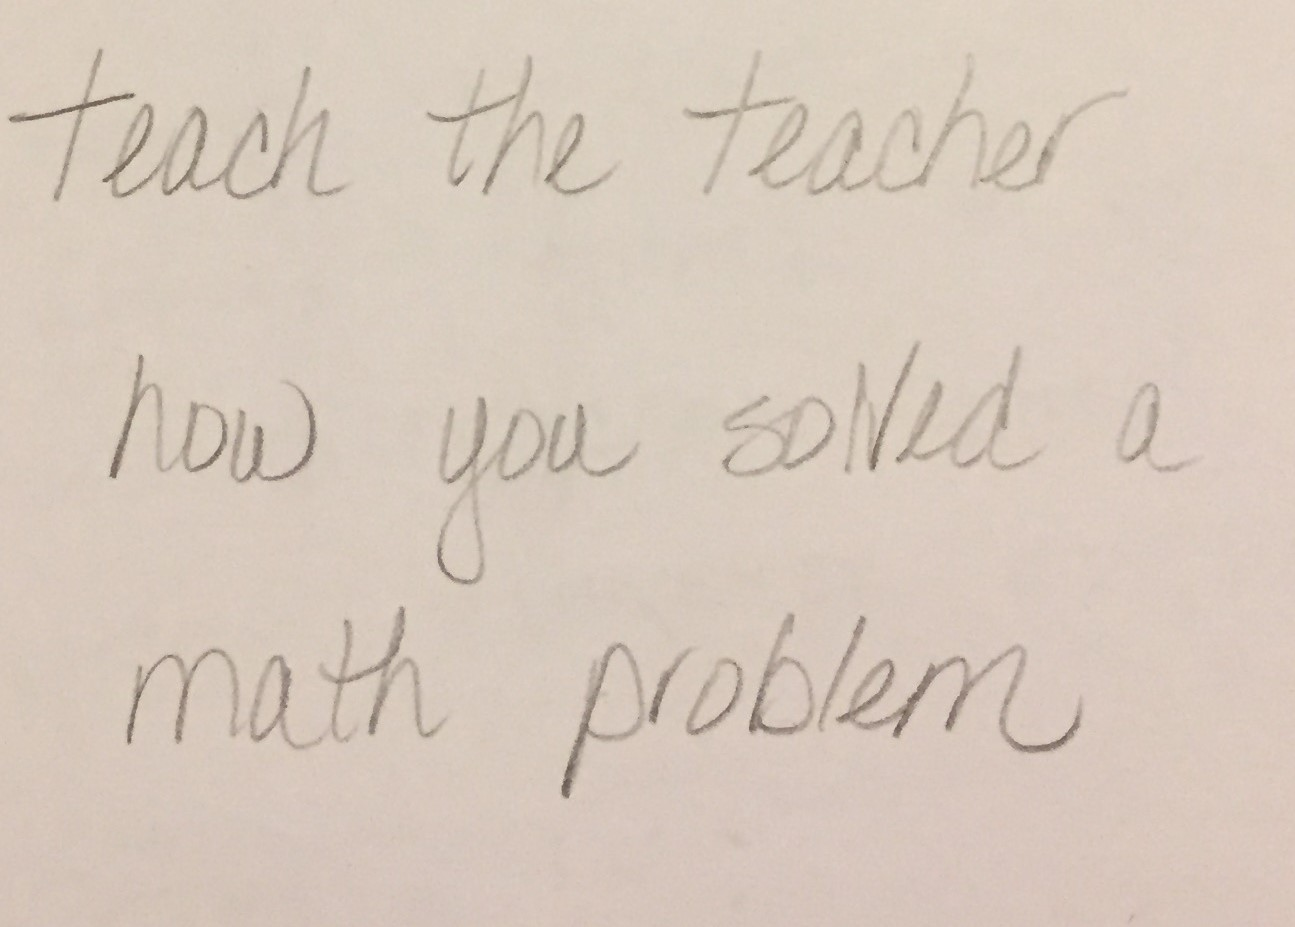 teach the teacher
how you solved a
math problem